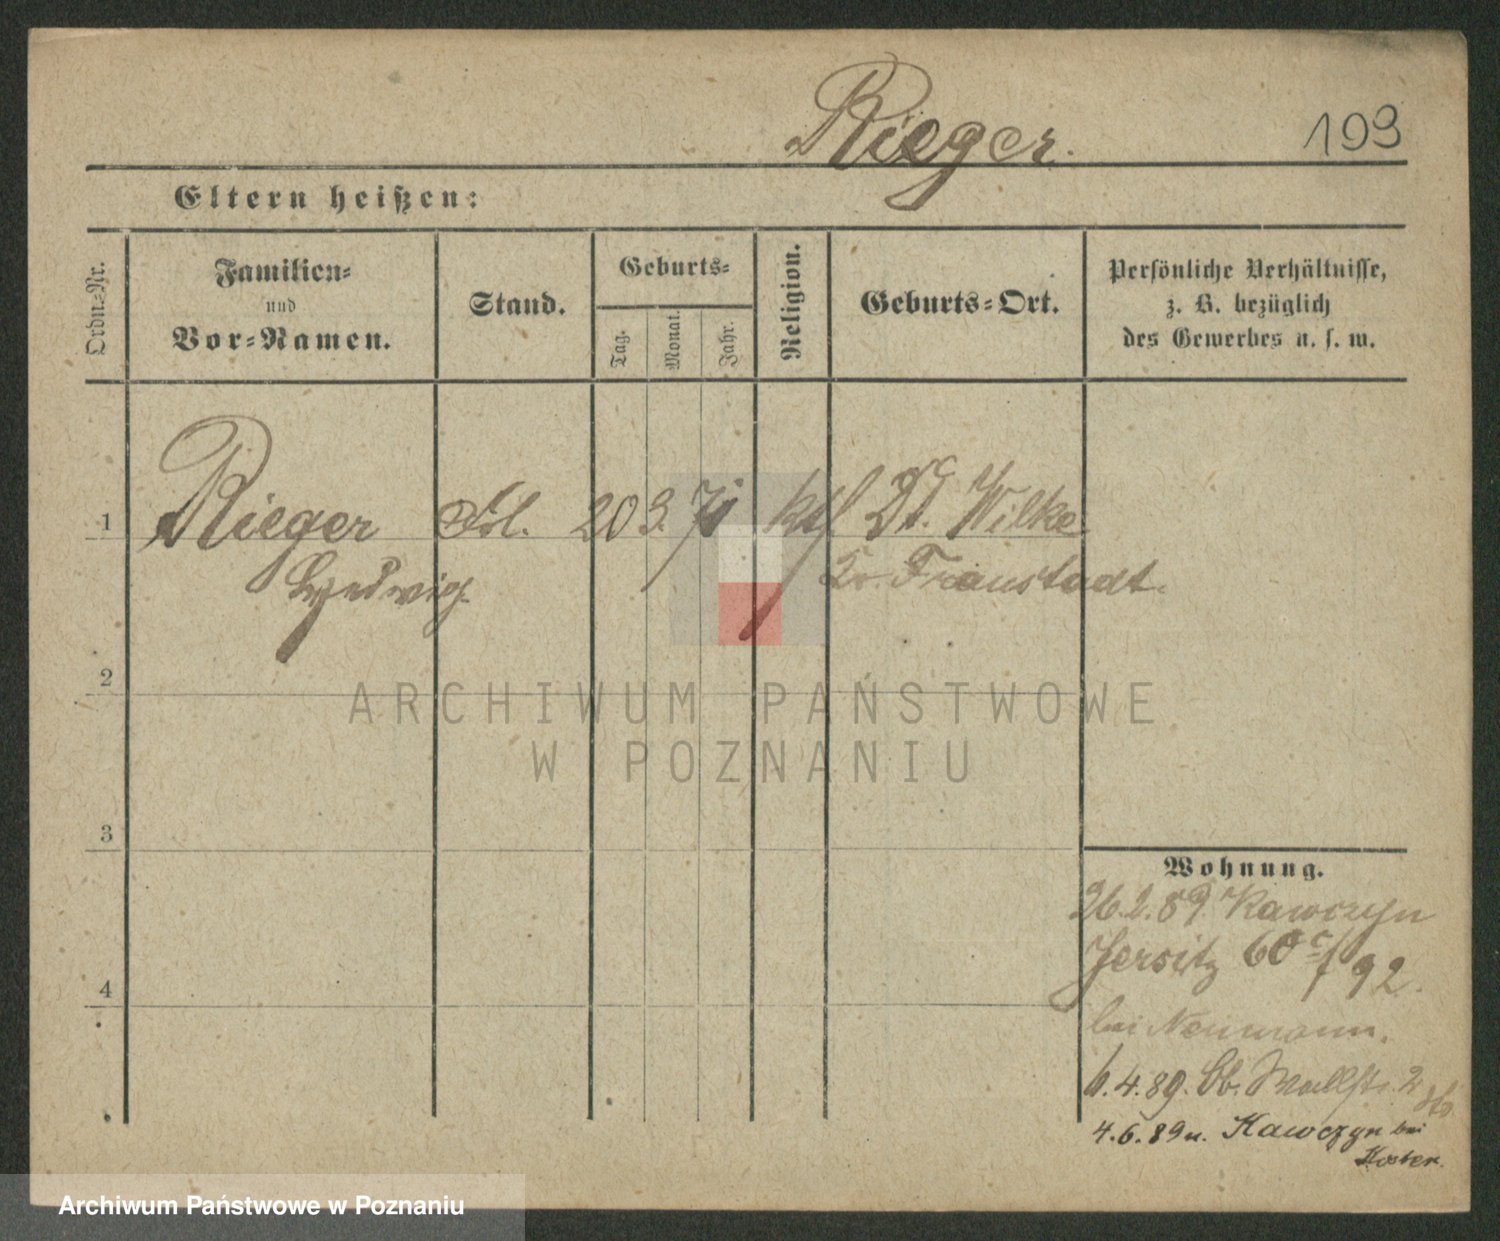 Rieger.
193
Eltern heißen:
Ordn=Nr.
Familien=
und
Vor=Namen.
Stand.
Geburts=
Tag.
Monat.
Jahr.
Religion.
Geburts=Ort.
Persönliche Verhältnisse,
z. B. bezüglich
des Gewerbes u. s. w.
1
Rieger Frl. 20 3. 71 kth Dt. Wilke
Hedwig. Kr. Fraustadt.
2
3
4
Wohnung.
26.2.89 Kawczyn
Jersitz 60 92.
bei Neumann.
6.4.89. Ob. Wallstr. 2
4.6.89 n. Kawczyn bei
Koster.
ARCHIWUM PAŃSTWOWE
W POZNANIU
Archiwum Państwowe w Poznaniu